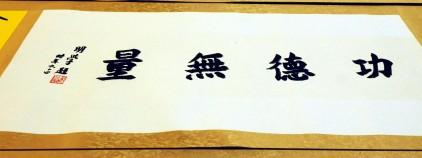 功德無量